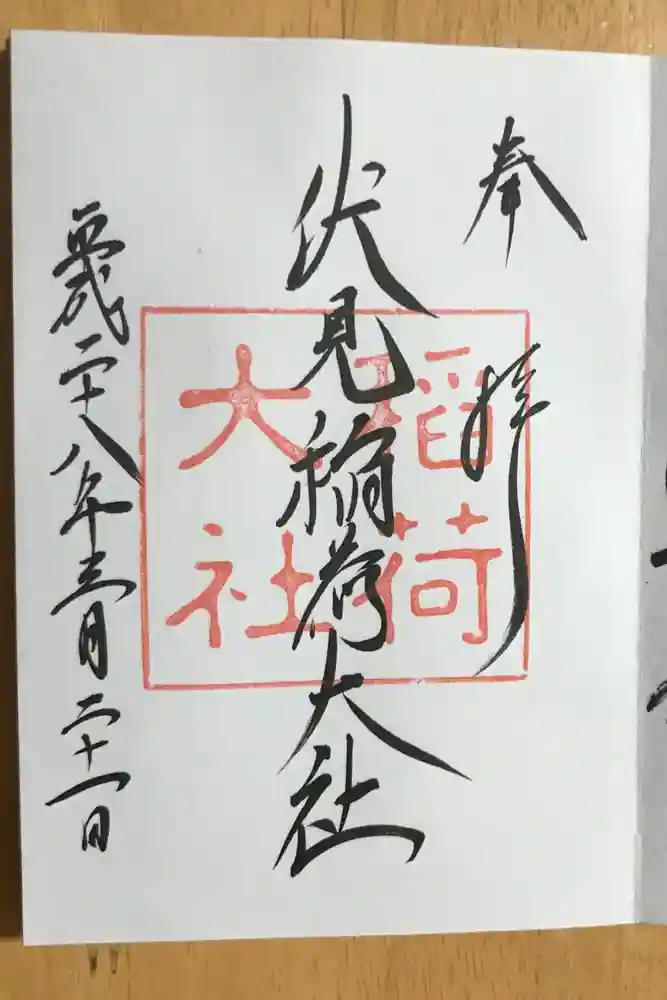 奉拝
伏見稲荷大社
平成二十八年三月二十一日
稲荷
大社